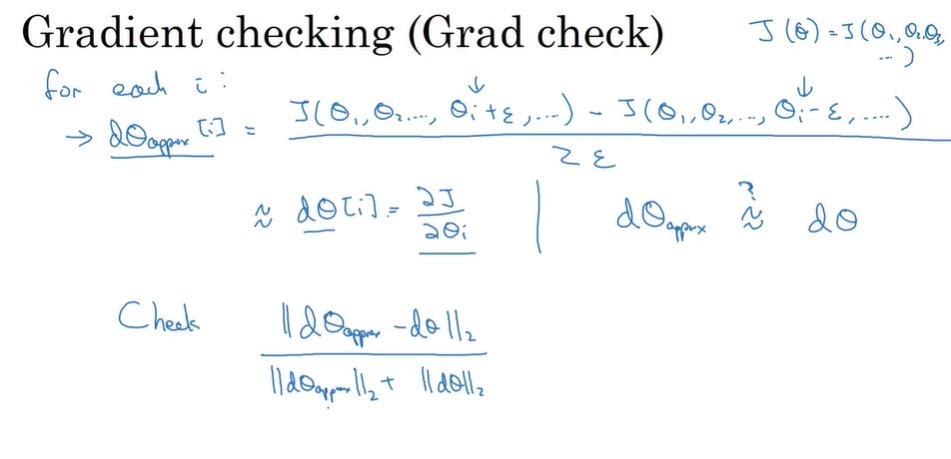 Gradient checking (Grad check)
J(θ) = J(θ₁, θ₂, θ₃, ...)
for each i:
→ dθapprox[i] = (J(θ₁, θ₂, ..., θᵢ+ε, ...) - J(θ₁, θ₂, ..., θᵢ-ε, ....)) / 2ε
≈ dθ[i] = ∂J/∂θᵢ | dθapprox ≈? dθ
Check ||dθapprox - dθ||₂ / (||dθapprox||₂ + ||dθ||₂)